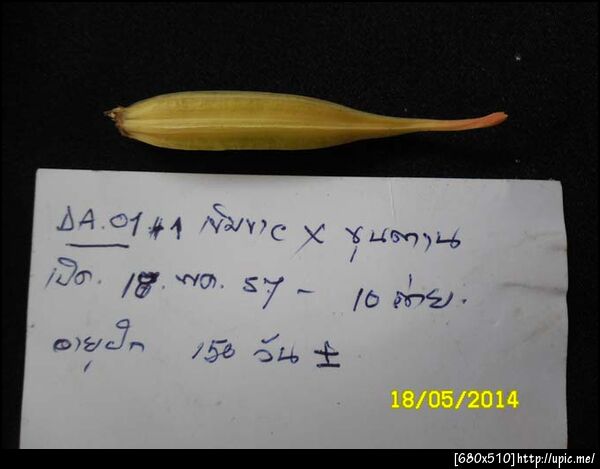 DA.01 #1 เข็มขาว X ขุนตาน
เปิด. 18 พค. 57 - 10 ฝ่าย.
อายุฝัก 150 วัน ±
18/05/2014
[680x510]http://upic.me/